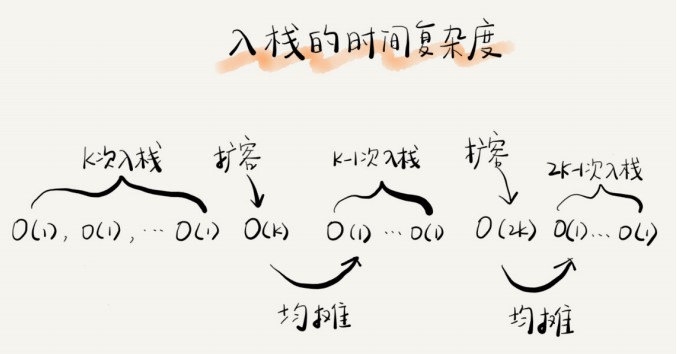 入栈的时间复杂度
K次入栈 扩容 K-1次入栈 扩容 2K-1次入栈
O(1), O(1), ... O(1) O(K) O(1) ... O(1) O(2K) O(1)... O(1)
均摊 均摊